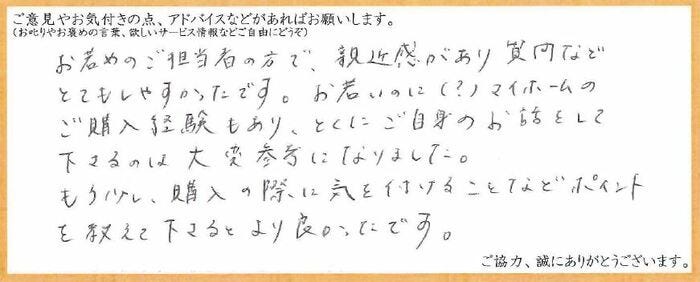 ご意見やお気付きの点、アドバイスなどがあればお願いします。
(お叱りやお褒めの言葉、欲しいサービス情報などご自由にどうぞ)
お若めのご担当者の方で、親近感があり質問など
とてもしやすかったです。お若いのに(?)マイホームの
ご購入経験もあり、とくにご自身のお話をして
下さるのは大変参考になりました。
もう少し、購入の際に気を付けることなどポイント
を教えて下さるとより良かったです。
ご協力、誠にありがとうございます。